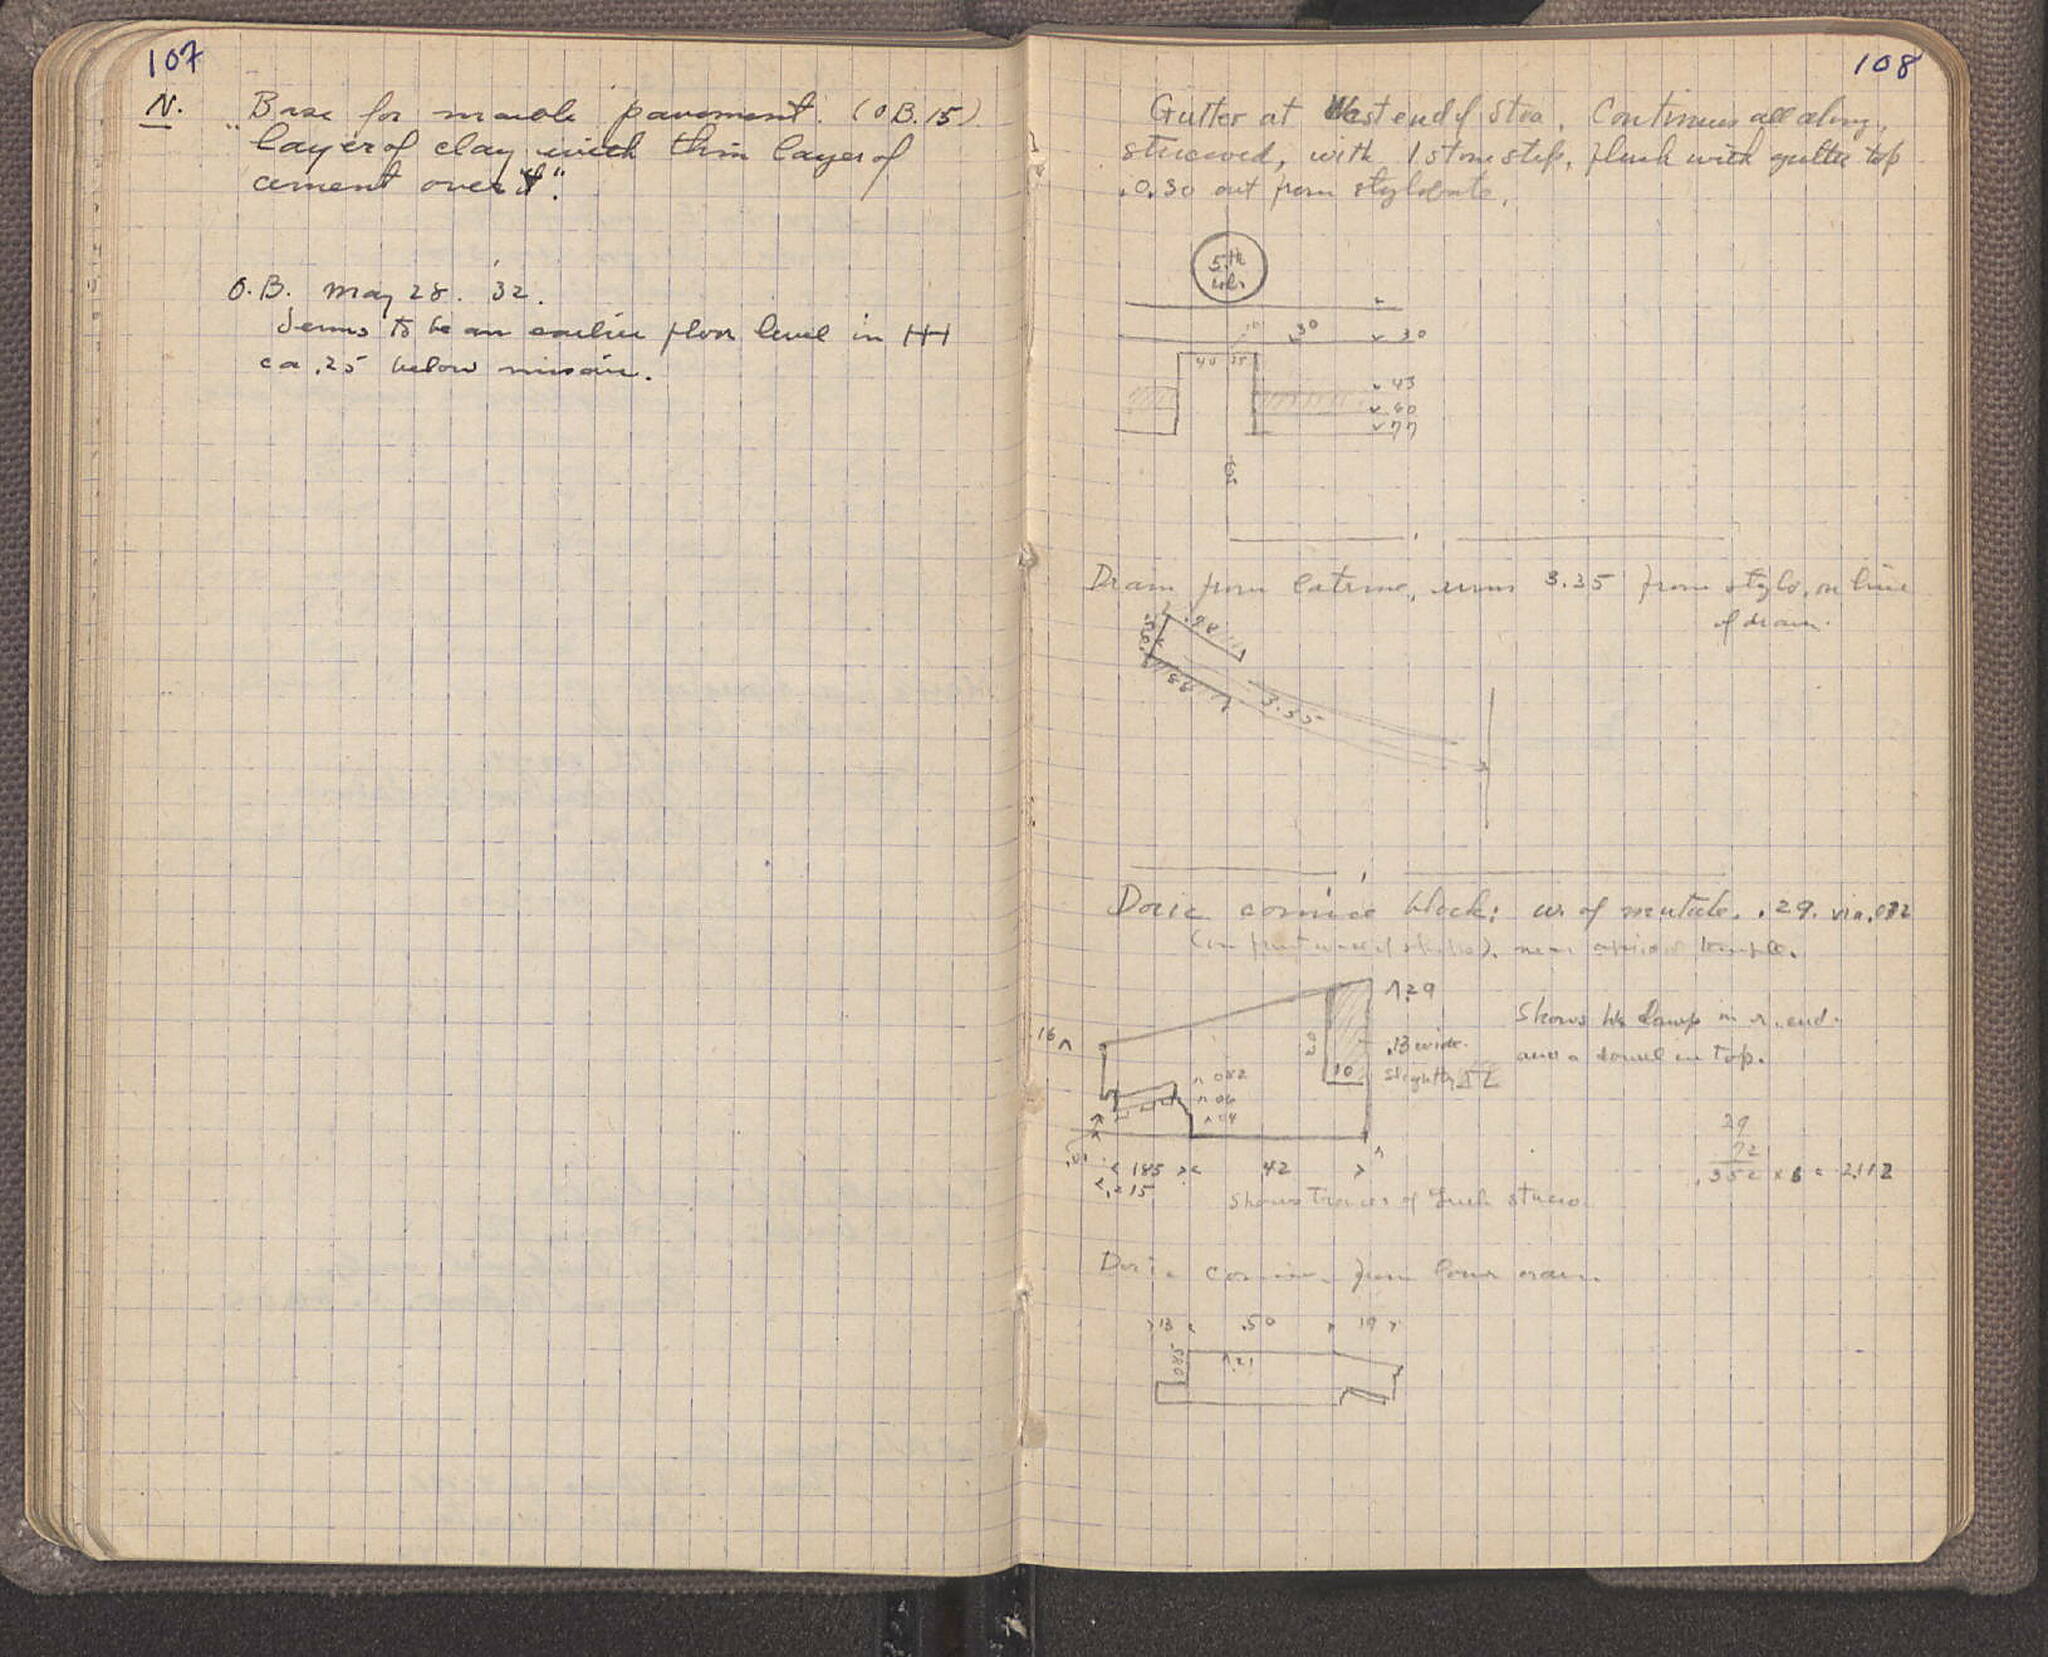 107
N. Base for marble pavement. (OB.15)
"layer of clay with thin layer of
cement over it".
O.B. May 28. '32.
Seems to be an earlier floor level in HH
ca .25 below mosaic.
108
Gutter at West end of Stoa. Continues all along,
stuccoed, with 1 stone step, flush with gutter top
.0.30 out from stylobate.
5th
col.
30
30
40 25
43
60
77
Drain from latrine, runs 3.35 from stylo. on line
of drain.
.98
.88
3.35
Doric cornice block: w. of mutule. .29. via .072
near apsidal temple.
.29
16
Shows H clamp in r. end.
.13 wide.
and a dowel in top.
10
slightly
082
06
04
29
72
.01
185 42
.352 x 6 = 2.112
.215
Shows traces of stucco.
Doric cornice from drain.
13 .50 19
085
.21